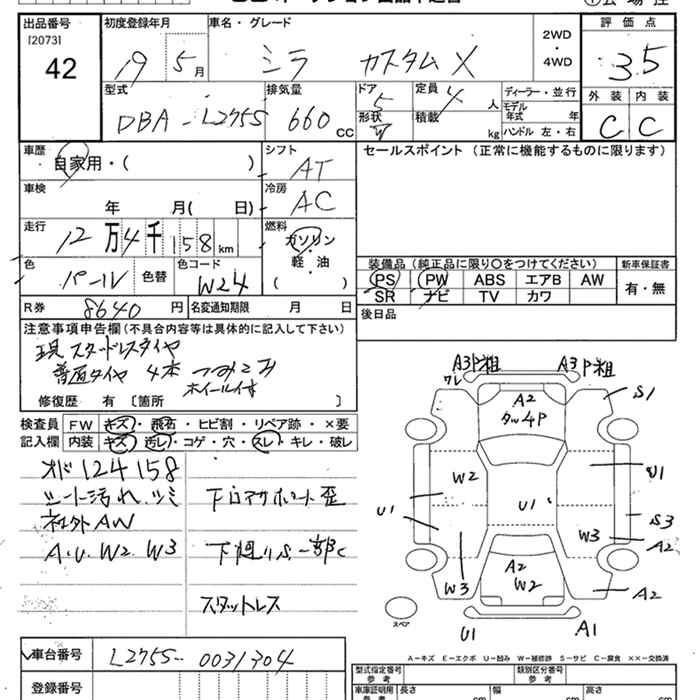 出品番号 初度登録年月 車名・グレード 評価点
[2073]
42 19年 5月 ミラ カスタム X 2WD・4WD 3.5
型式 排気量 ドア 定員 人 ディーラー・並行 外装 内装
DBA-L275S 660 CC 5 4 モデル年式 年
形状 積載 kg ハンドル 左・右 C C
車歴 自家用・( ) シフト AT セールスポイント (正常に機能するものに限ります)
車検 年 月( 日) 冷房 AC
走行 12万4千158km 燃料 ガソリン・軽・油 ( )
色 パール 色替 色コード W24
装備品 (純正品に限り○をつけてください) 新車保証書
PS PW ABS エアB AW 有・無
SR ナビ TV カワ
R券 8640円 名変通知期限 月 日 後日品
注意事項申告欄(不具合内容等は具体的に記入して下さい)
現 スタッドレスタイヤ
普通タイヤ 4本 つみこみ
ホイール付
修復歴 有 〔箇所 〕
検査員 FW キズ・飛石・ヒビ割・リペア跡・×要
記入欄 内装 キズ・汚レ・コゲ・穴・スレ・キレ・破レ
オド 124158
シート汚れ、ツミ 下ロアサポート歪
社外AW
A.U.W2.W3 下廻りS一部C
スタットレス
A3P粗 A3P粗
ワレ
A2 S1
タッ4P
W2 U1
U1 U1
S3
W3 A2
A2
W3 W2 A2
スペア
U1 A1
A－キズ E－エクボ U－凹み W－補修跡 S－サビ C－腐食 ××－交換済
車台番号 L275S-0031304
登録番号
型式指定番号 参考 類別区分番号 参考
車庫証明用 参考 長さ cm 幅 cm 高さ cm